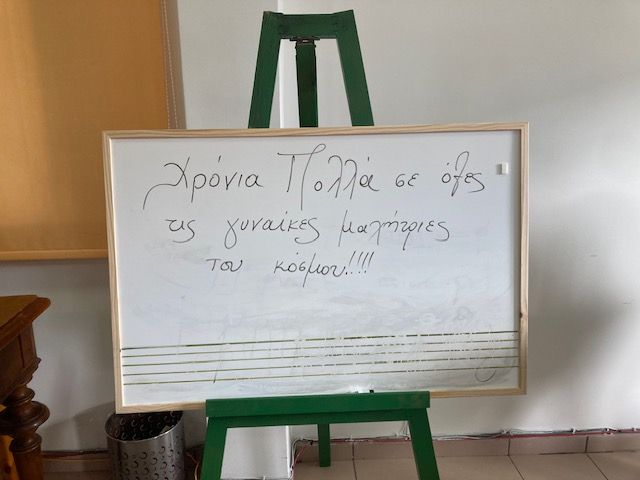 Χρόνια Πολλά σε όλες
τις γυναίκες μαλήτριες
του κόσμου!!!!